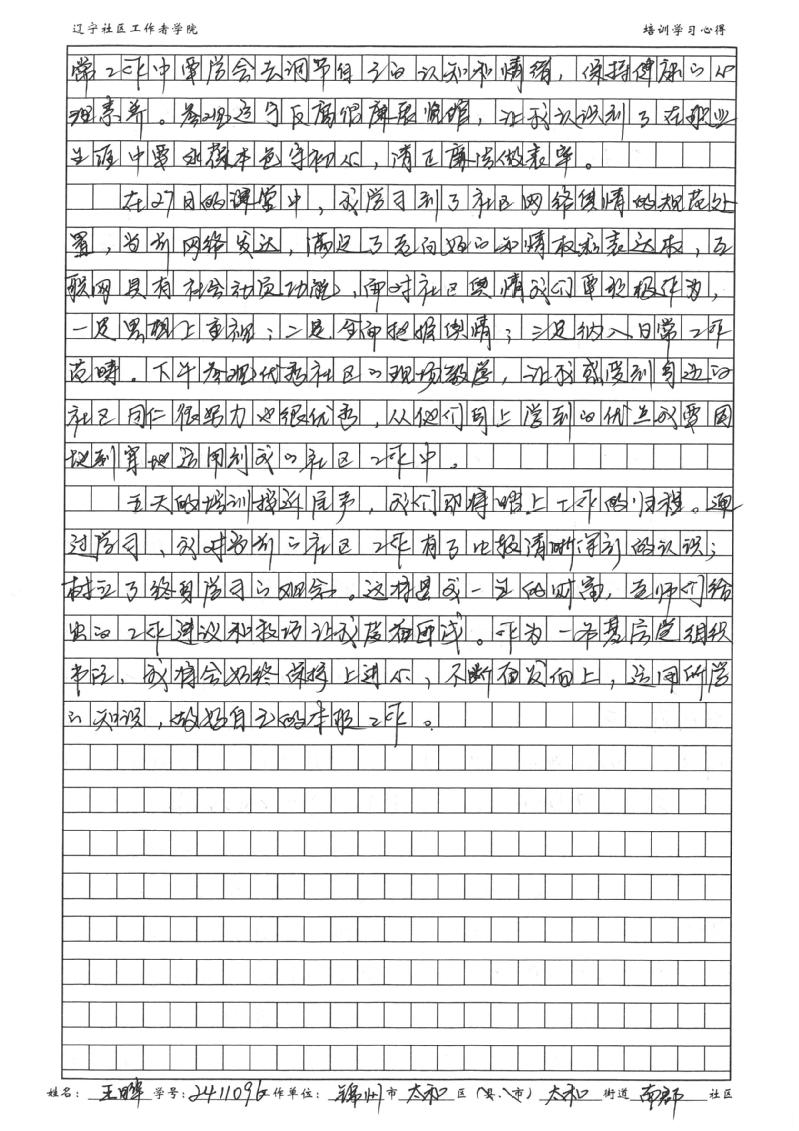 辽宁社区工作者学院 培训学习心得
常工作中要学会去调节自己的认知和情绪，保持健康的心
理素养。参观辽宁反腐倡廉展览馆，让我认识到了在职业
生涯中要永葆本色守初心，清正廉洁做表率。
在27日的课堂中，我学习到了社区网络舆情的规范处
置，当前网络发达，满足了老百姓的知情权和表达权，互
联网具有社会动员功能，面对社区舆情我们要积极作为，
一是思想上重视；二是全面把握舆情；三是纳入日常工作
范畴。下午参观优秀社区的现场教学，让我感受到身边的
社区同仁很努力也很优秀，从他们身上学到的优点我要因
地制宜地运用到我的社区工作中。
五天的培训接近尾声，我们即将踏上工作的归程。通
过学习，我对当前的社区工作有了比较清晰深刻的认识；
树立了终身学习的观念。这将是我一生的财富，老师们给
出的工作建议和技巧让我度。作为一名基层党组织
书记，我将会始终保持上进心，不断奋发向上，运用所学
的知识，做好自己的本职工作。
姓名：王晔 学号：2411096 工作单位：锦州市 太和 区（县、市） 太和 街道 南郡 社区